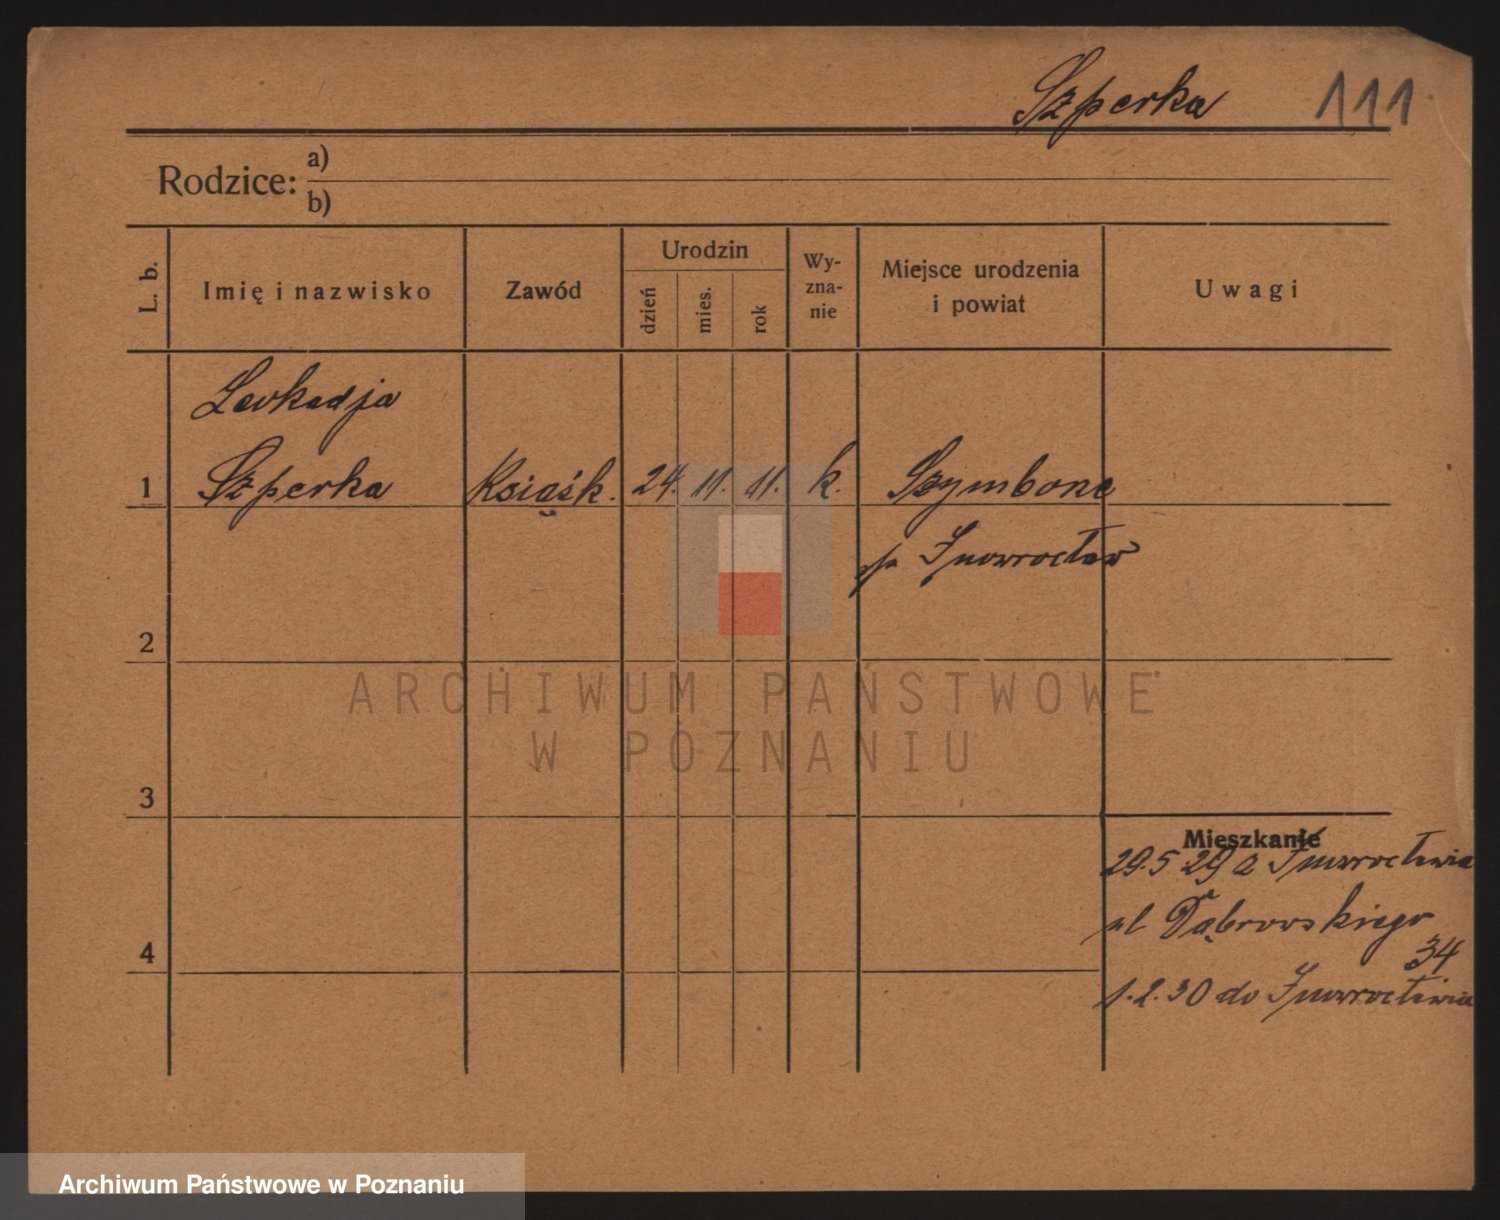 Szperka 111
Rodzice: a)
b)
L. b.
Imię i nazwisko
Zawód
Urodzin
dzień
mies.
rok
Wy-
zna-
nie
Miejsce urodzenia
i powiat
Uwagi
Leokadja
1 Szperka Książk. 24. 11. 11. k. Szymborze
p. Inowrocław
2
ARCHIWUM PAŃSTWOWE
W POZNANIU
3
Mieszkanie
29.5 29 z Inowrocławia
ul Dąbrowskiego
34
4
1.2.30 do Inowrocławia
Archiwum Państwowe w Poznaniu